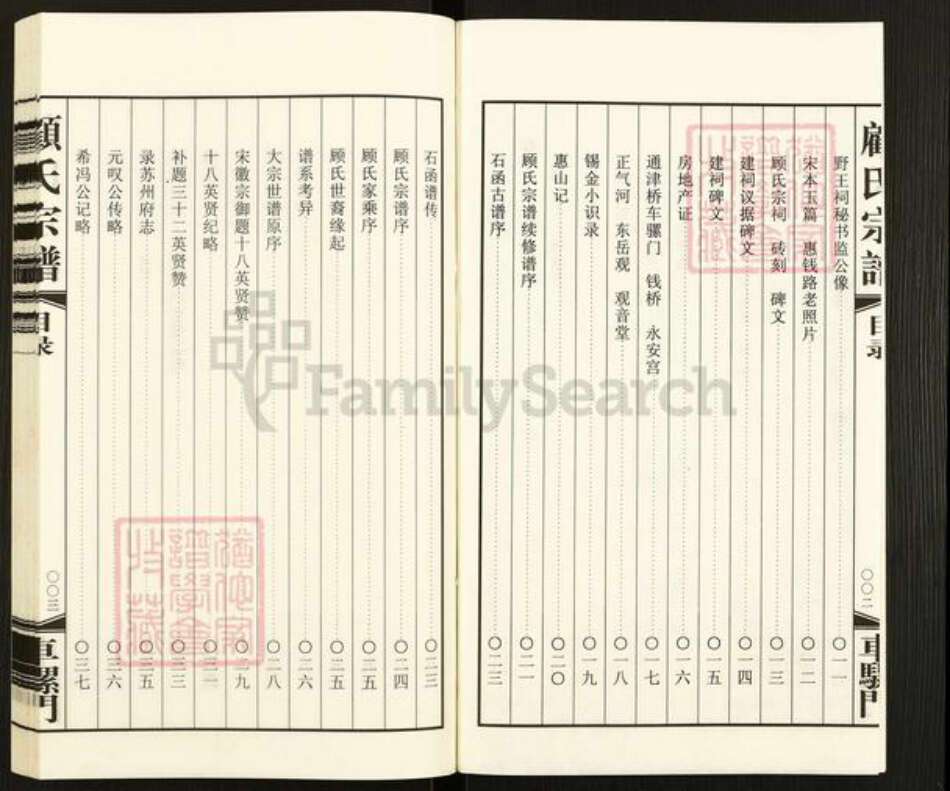 顾氏宗谱
目录
〇〇二
車騾門
野王祠秘书监公像 〇一一
宋本玉篇 惠钱路老照片 〇一二
顾氏宗祠 砖刻 碑文 〇一三
建祠议据碑文 〇一四
建祠碑文 〇一五
房地产证 〇一六
通津桥车骡门 钱桥 永安宫 〇一七
正气河 东岳观 观音堂 〇一八
锡金小识录 〇一九
惠山记 〇二〇
顾氏宗谱续修谱序
石函古谱序 〇二三
石函谱传
顾氏宗谱序 〇二四
顾氏家乘序 〇二五
顾氏世裔缘起 〇二五
谱系考异 〇二六
大宗世谱原序 〇二八
宋徽宗御题十八英贤赞 〇二九
十八英贤纪略
补题三十二英贤赞
录苏州府志 〇三五
元叹公传略 〇三六
希冯公记略 〇三七
顧氏宗譜
目录
〇〇三
車騾門
FamilySearch